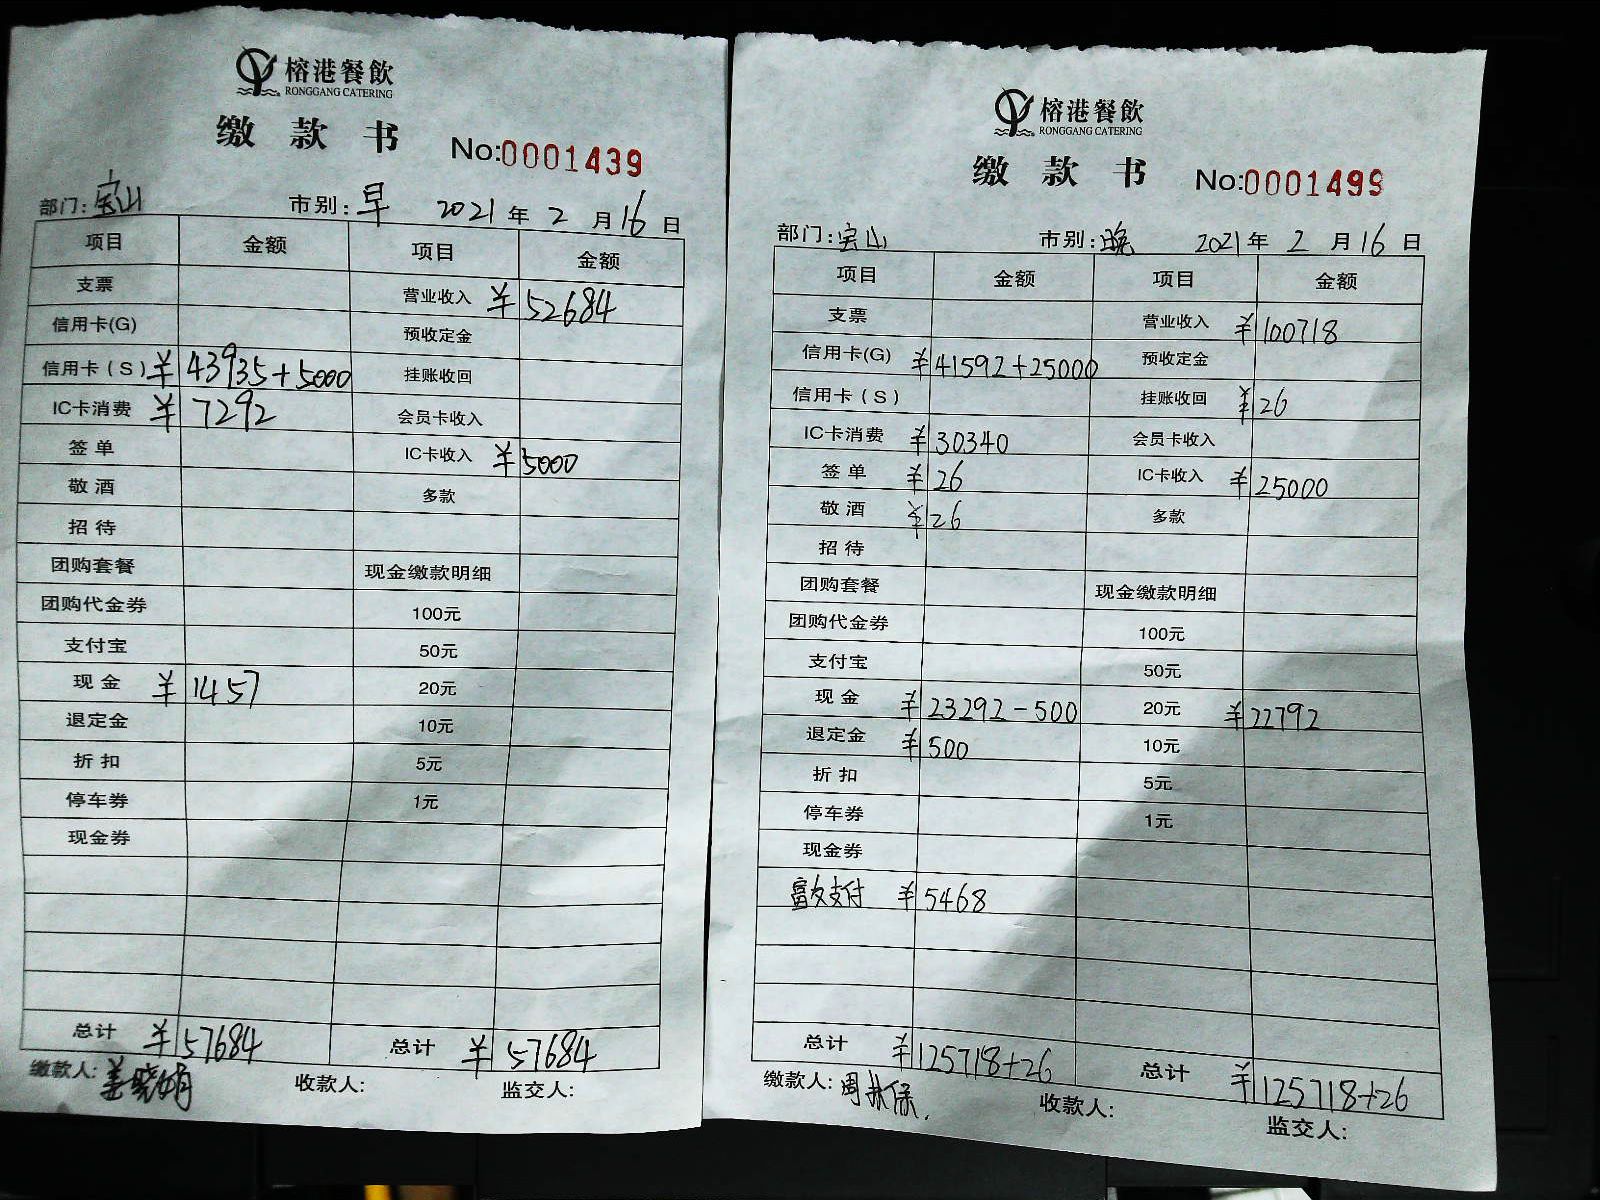 榕港餐飲
RONGGANG CATERING
缴款书 No:0001439
部门:宝山 市别:早 2021年2月16日
项目 金额 项目 金额
支票 营业收入 ¥52684
信用卡(G) 预收定金
信用卡(S) ¥43935+5000 挂账收回
IC卡消费 ¥7292 会员卡收入
签单 IC卡收入 ¥5000
敬酒 多款
招待
团购套餐 现金缴款明细
团购代金券 100元
支付宝 50元
现金 ¥1457 20元
退定金 10元
折扣 5元
停车券 1元
现金券
总计 ¥57684 总计 ¥57684
缴款人:姜晓娟 收款人: 监交人:
榕港餐飲
RONGGANG CATERING
缴款书 No:0001499
部门:宝山 市别:晚 2021年2月16日
项目 金额 项目 金额
支票 营业收入 ¥100718
信用卡(G) ¥41592+25000 预收定金
信用卡(S) 挂账收回 ¥26
IC卡消费 ¥30340 会员卡收入
签单 ¥26 IC卡收入 ¥25000
敬酒 ¥26 多款
招待
团购套餐 现金缴款明细
团购代金券 100元
支付宝 50元
现金 ¥23292-500 20元 ¥22792
退定金 ¥500 10元
折扣 5元
停车券 1元
现金券
富友支付 ¥5468
总计 ¥125718+26 总计 ¥125718+26
缴款人:周 保 收款人: 监交人: